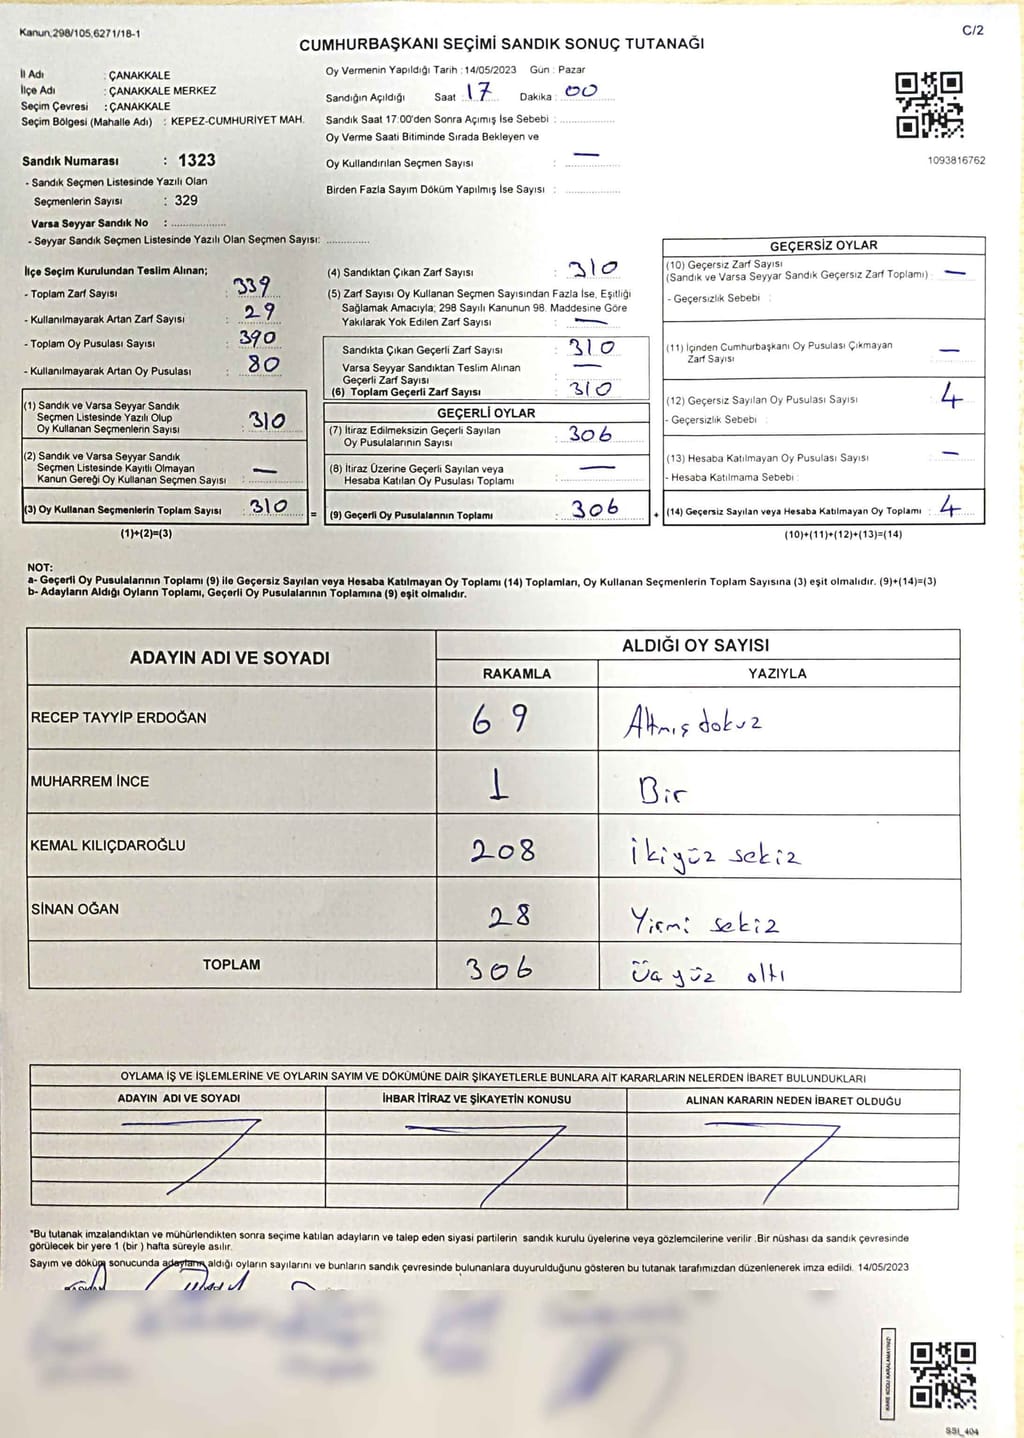 Kanun,298/105,6271/18-1
C/2
CUMHURBAŞKANI SEÇİMİ SANDIK SONUÇ TUTANAĞI
İl Adı : ÇANAKKALE
İlçe Adı : ÇANAKKALE MERKEZ
Seçim Çevresi : ÇANAKKALE
Seçim Bölgesi (Mahalle Adı) : KEPEZ-CUMHURİYET MAH.
Sandık Numarası : 1323
- Sandık Seçmen Listesinde Yazılı Olan
Seçmenlerin Sayısı : 329
Varsa Seyyar Sandık No :
- Seyyar Sandık Seçmen Listesinde Yazılı Olan Seçmen Sayısı:
Oy Vermenin Yapıldığı Tarih : 14/05/2023 Gün : Pazar
Sandığın Açıldığı Saat 17 Dakika : 00
Sandık Saat 17:00'den Sonra Açımış İse Sebebi :
Oy Verme Saati Bitiminde Sırada Bekleyen ve
Oy Kullandırılan Seçmen Sayısı : —
Birden Fazla Sayım Döküm Yapılmış İse Sayısı :
1093816762
İlçe Seçim Kurulundan Teslim Alınan;
- Toplam Zarf Sayısı : 339
- Kullanılmayarak Artan Zarf Sayısı : 29
- Toplam Oy Pusulası Sayısı : 390
- Kullanılmayarak Artan Oy Pusulası : 80
(1) Sandık ve Varsa Seyyar Sandık
Seçmen Listesinde Yazılı Olup
Oy Kullanan Seçmenlerin Sayısı : 310
(2) Sandık ve Varsa Seyyar Sandık
Seçmen Listesinde Kayıtlı Olmayan
Kanun Gereği Oy Kullanan Seçmen Sayısı : —
(3) Oy Kullanan Seçmenlerin Toplam Sayısı : 310
(1)+(2)=(3)
(4) Sandıktan Çıkan Zarf Sayısı : 310
(5) Zarf Sayısı Oy Kullanan Seçmen Sayısından Fazla İse, Eşitliği
Sağlamak Amacıyla; 298 Sayılı Kanunun 98. Maddesine Göre
Yakılarak Yok Edilen Zarf Sayısı : —
Sandıkta Çıkan Geçerli Zarf Sayısı : 310
Varsa Seyyar Sandıktan Teslim Alınan
Geçerli Zarf Sayısı : —
(6) Toplam Geçerli Zarf Sayısı : 310
GEÇERLİ OYLAR
(7) İtiraz Edilmeksizin Geçerli Sayılan
Oy Pusulalarının Sayısı : 306
(8) İtiraz Üzerine Geçerli Sayılan veya
Hesaba Katılan Oy Pusulası Toplamı : —
= (9) Geçerli Oy Pusulalarının Toplamı : 306
GEÇERSİZ OYLAR
(10) Geçersiz Zarf Sayısı
(Sandık ve Varsa Seyyar Sandık Geçersiz Zarf Toplamı) : —
- Geçersizlik Sebebi :
(11) İçinden Cumhurbaşkanı Oy Pusulası Çıkmayan
Zarf Sayısı : —
(12) Geçersiz Sayılan Oy Pusulası Sayısı : 4
- Geçersizlik Sebebi :
(13) Hesaba Katılmayan Oy Pusulası Sayısı : —
- Hesaba Katılmama Sebebi :
+ (14) Geçersiz Sayılan veya Hesaba Katılmayan Oy Toplamı : 4
(10)+(11)+(12)+(13)=(14)
NOT:
a- Geçerli Oy Pusulalarının Toplamı (9) ile Geçersiz Sayılan veya Hesaba Katılmayan Oy Toplamı (14) Toplamları, Oy Kullanan Seçmenlerin Toplam Sayısına (3) eşit olmalıdır. (9)+(14)=(3)
b- Adayların Aldığı Oyların Toplamı, Geçerli Oy Pusulalarının Toplamına (9) eşit olmalıdır.
ADAYIN ADI VE SOYADI
ALDIĞI OY SAYISI
RAKAMLA YAZIYLA
RECEP TAYYİP ERDOĞAN 69 Altmış dokuz
MUHARREM İNCE 1 Bir
KEMAL KILIÇDAROĞLU 208 ikiyüz sekiz
SİNAN OĞAN 28 Yirmi sekiz
TOPLAM 306 üç yüz altı
OYLAMA İŞ VE İŞLEMLERİNE VE OYLARIN SAYIM VE DÖKÜMÜNE DAİR ŞİKAYETLERLE BUNLARA AİT KARARLARIN NELERDEN İBARET BULUNDUKLARI
ADAYIN ADI VE SOYADI İHBAR İTİRAZ VE ŞİKAYETİN KONUSU ALINAN KARARIN NEDEN İBARET OLDUĞU
*Bu tutanak imzalandıktan ve mühürlendikten sonra seçime katılan adayların ve talep eden siyasi partilerin sandık kurulu üyelerine veya gözlemcilerine verilir .Bir nüshası da sandık çevresinde
görülecek bir yere 1 (bir ) hafta süreyle asılır.
Sayım ve döküm sonucunda adayların aldığı oyların sayılarını ve bunların sandık çevresinde bulunanlara duyurulduğunu gösteren bu tutanak tarafımızdan düzenlenerek imza edildi. 14/05/2023
KARE KODU KARALAMAYINIZ
SSI_404